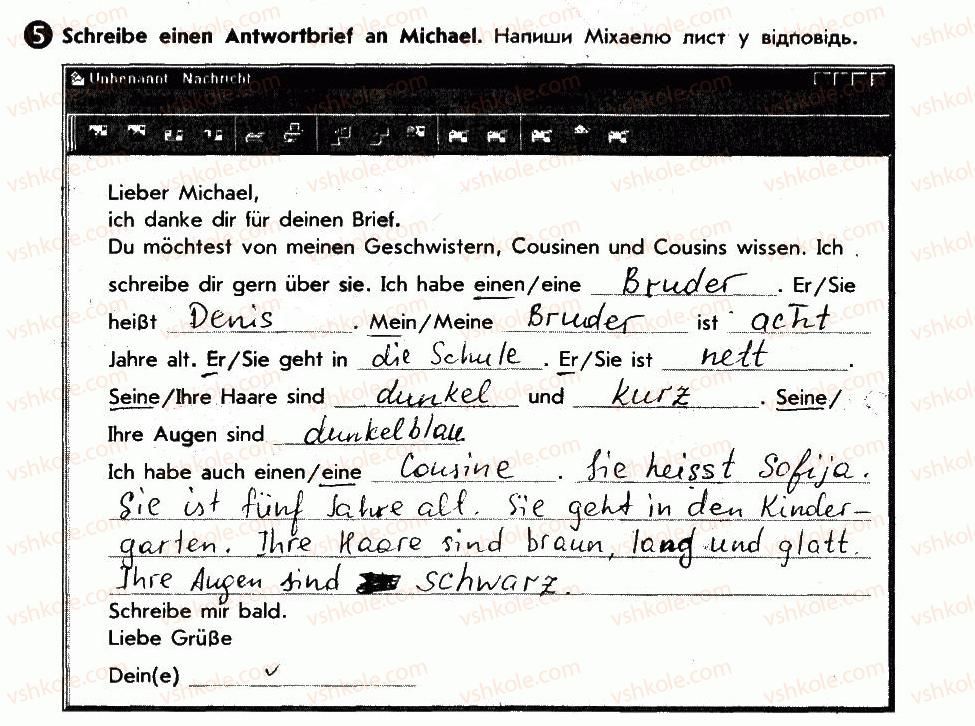 5 Schreibe einen Antwortbrief an Michael. Напиши Міхаелю лист у відповідь.
Unbenannt Nachricht
Lieber Michael,
ich danke dir für deinen Brief.
Du möchtest von meinen Geschwistern, Cousinen und Cousins wissen. Ich
schreibe dir gern über sie. Ich habe einen/eine Bruder. Er/Sie
heißt Denis. Mein/Meine Bruder ist acht
Jahre alt. Er/Sie geht in die Schule. Er/Sie ist nett.
Seine/Ihre Haare sind dunkel und kurz. Seine/
Ihre Augen sind dunkelblau.
Ich habe auch einen/eine Cousine. Sie heisst Sofija.
Sie ist fünf Jahre alt. Sie geht in den Kinder-
garten. Ihre Haare sind braun, lang und glatt.
Ihre Augen sind schwarz.
Schreibe mir bald.
Liebe Grüße
Dein(e)
vshkole.com